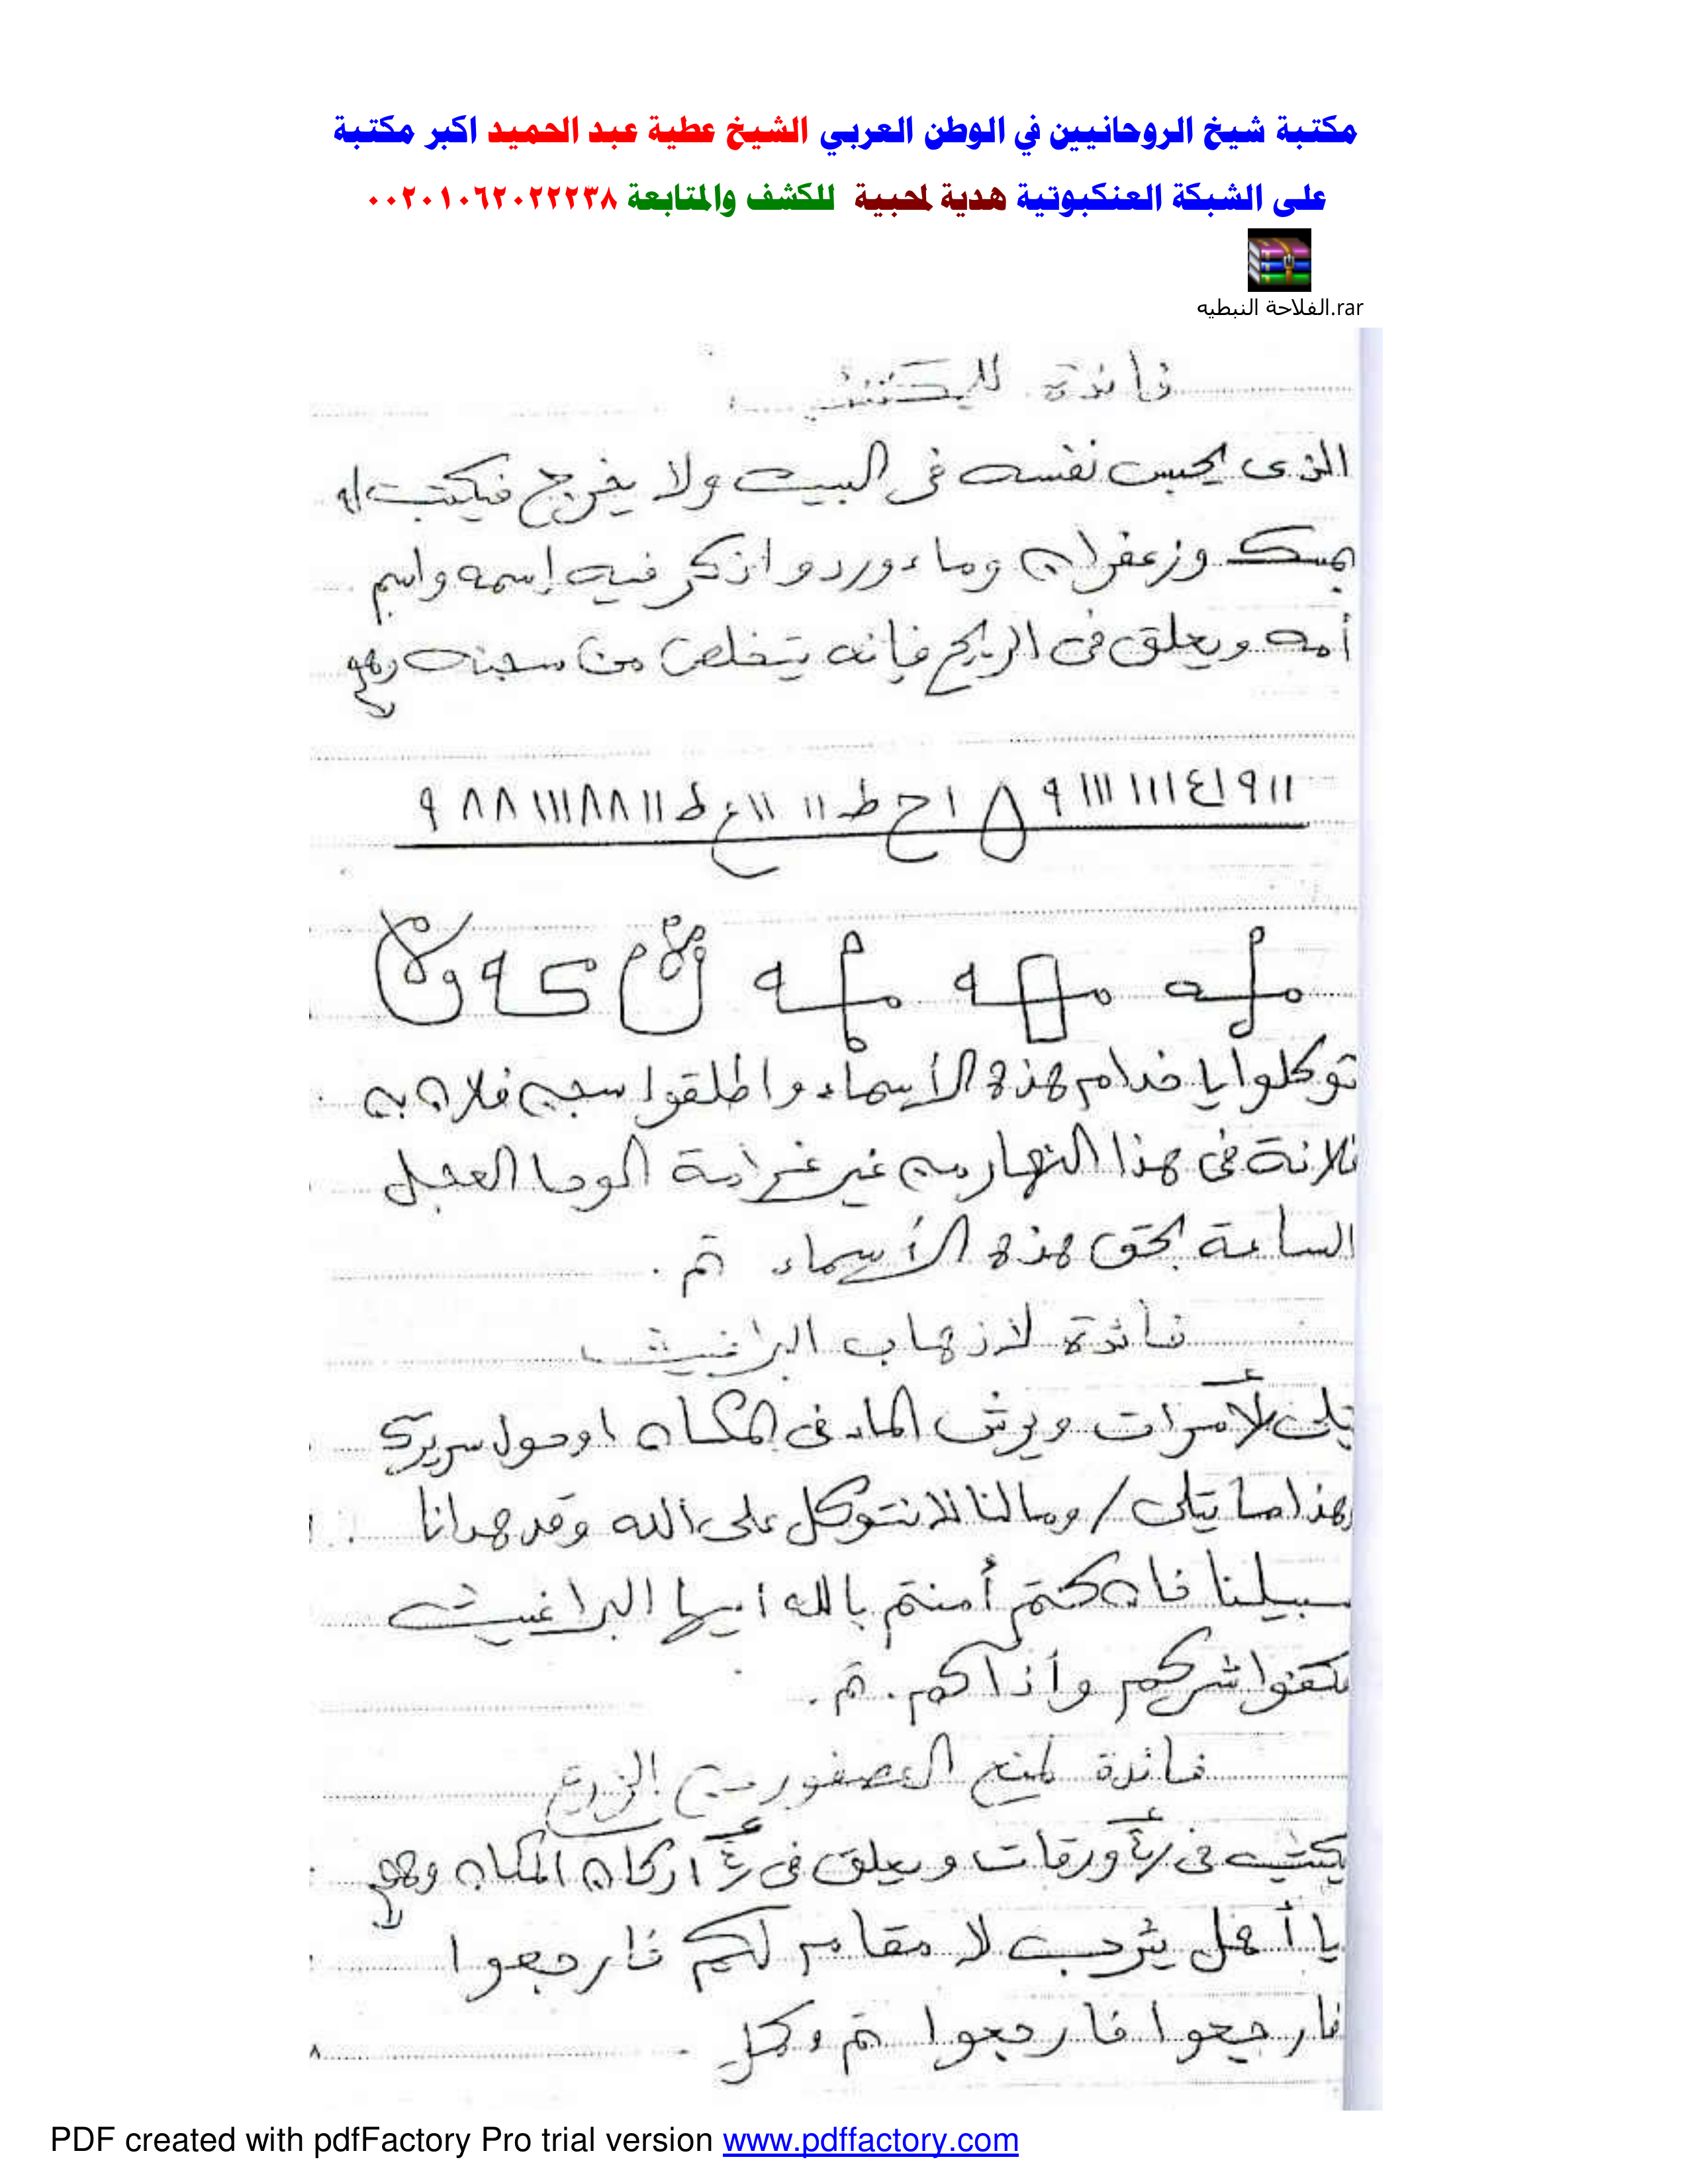 مكتبة شيخ الروحانيين في الوطن العربي الشيخ عطية عبد الحميد اكبر مكتبة
على الشبكة العنكبوتية هدية لمحبية للكشف والمتابعة ٠٠٢٠١٠٦٢٠٢٢٢٣٨
الفلاحة النبطيه.rar
فائدة
الذى يحبس نفسه فى البيت ولا يخرج فيكتب له
بمسك وزعفران وماء ورد واذكر فيه إسمه واسم
أمه ويعلق فى الريح فإنه يتخلص من سجنه وهو
توكلوا يا خدام هذه الأسماء واطلقوا سجن فلان بن
فلانة فى هذا النهار من غير غرامة الوحا العجل
الساعة بحق هذه الأسماء تم .
فائدة لاذهاب البراغيث
مرات ويرش الماء فى المكان اوحول سريرك
هذا ما يتلى / ومالنا لانتوكل على الله وقد هدانا
سبيلنا فان كنتم أمنتم بالله ايها البراغيث
شركم وأذاكم . تم .
فائدة لمنع العصفور من الزرع
يكتب فى ٤ ورقات ويعلق فى ٤ اركان المكان وهو
يا أهل يثرب لا مقام لكم فارجعوا
فارجعوا فارجعوا تم وكمل .
٨
PDF created with pdfFactory Pro trial version www.pdffactory.com